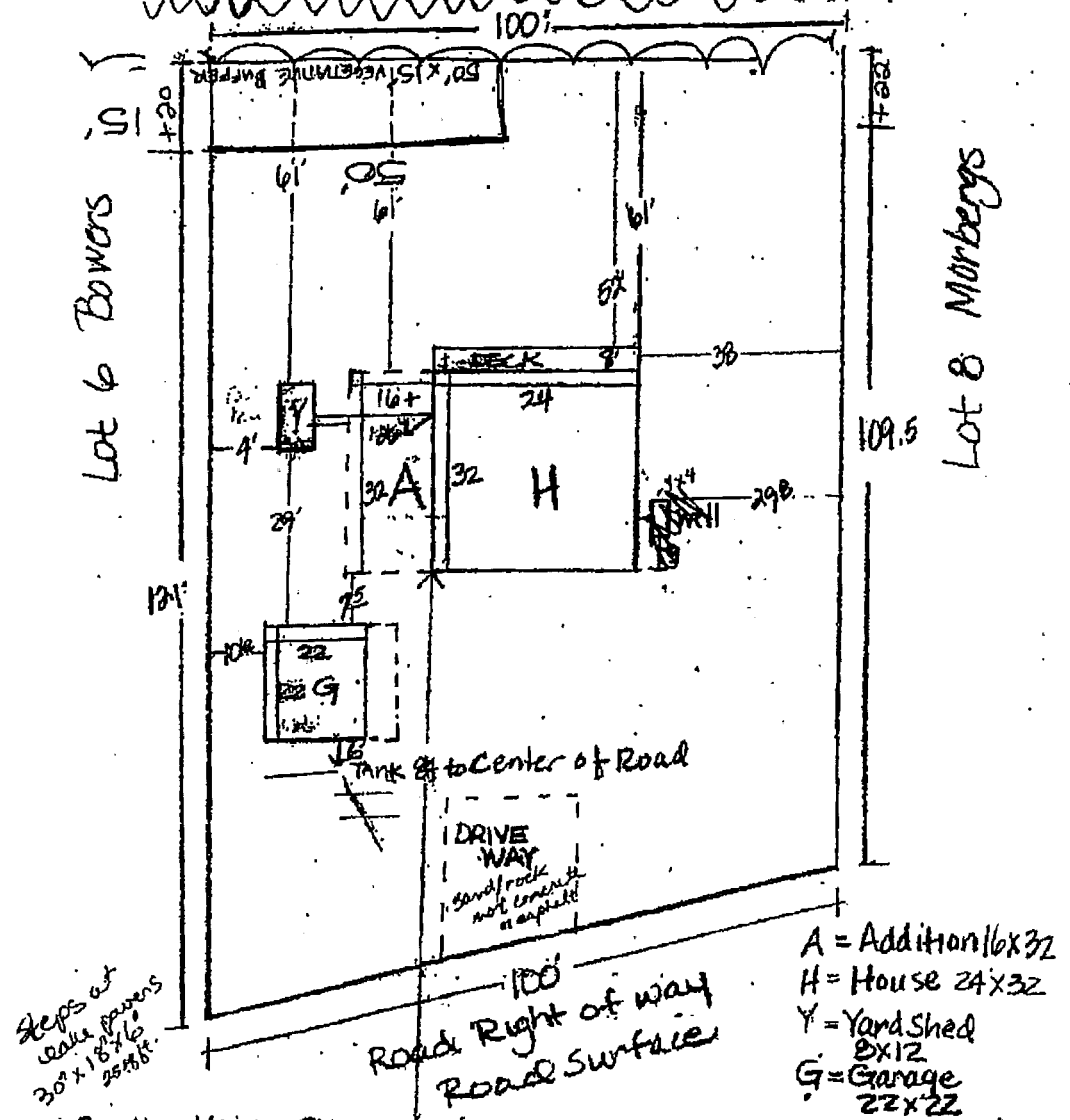 100'
50' x 15' VEGETATIVE BUFFER
15'
50'
61'
61'
61'
Lot 6 Bowers
Lot 8 Morbergs
52
DECK
8'
38
16+
24
Y
4'
32
A
32
H
109.5
298
29'
121'
75
22
G
16
Tank to Center of Road
DRIVE
WAY
sand/rock
not concrete
or asphalt
100'
Road Right of way
Road Surface
Steps at
lake pavers
30" x 18" x 6'
A = Addition 16x32
H = House 24x32
Y = Yard Shed
8x12
G = Garage
22x22